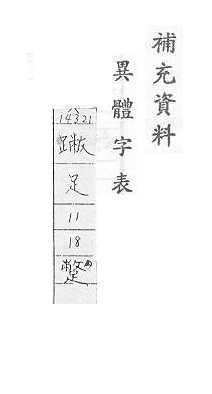 補充資料
異體字表
14321
足
11
18
蹩